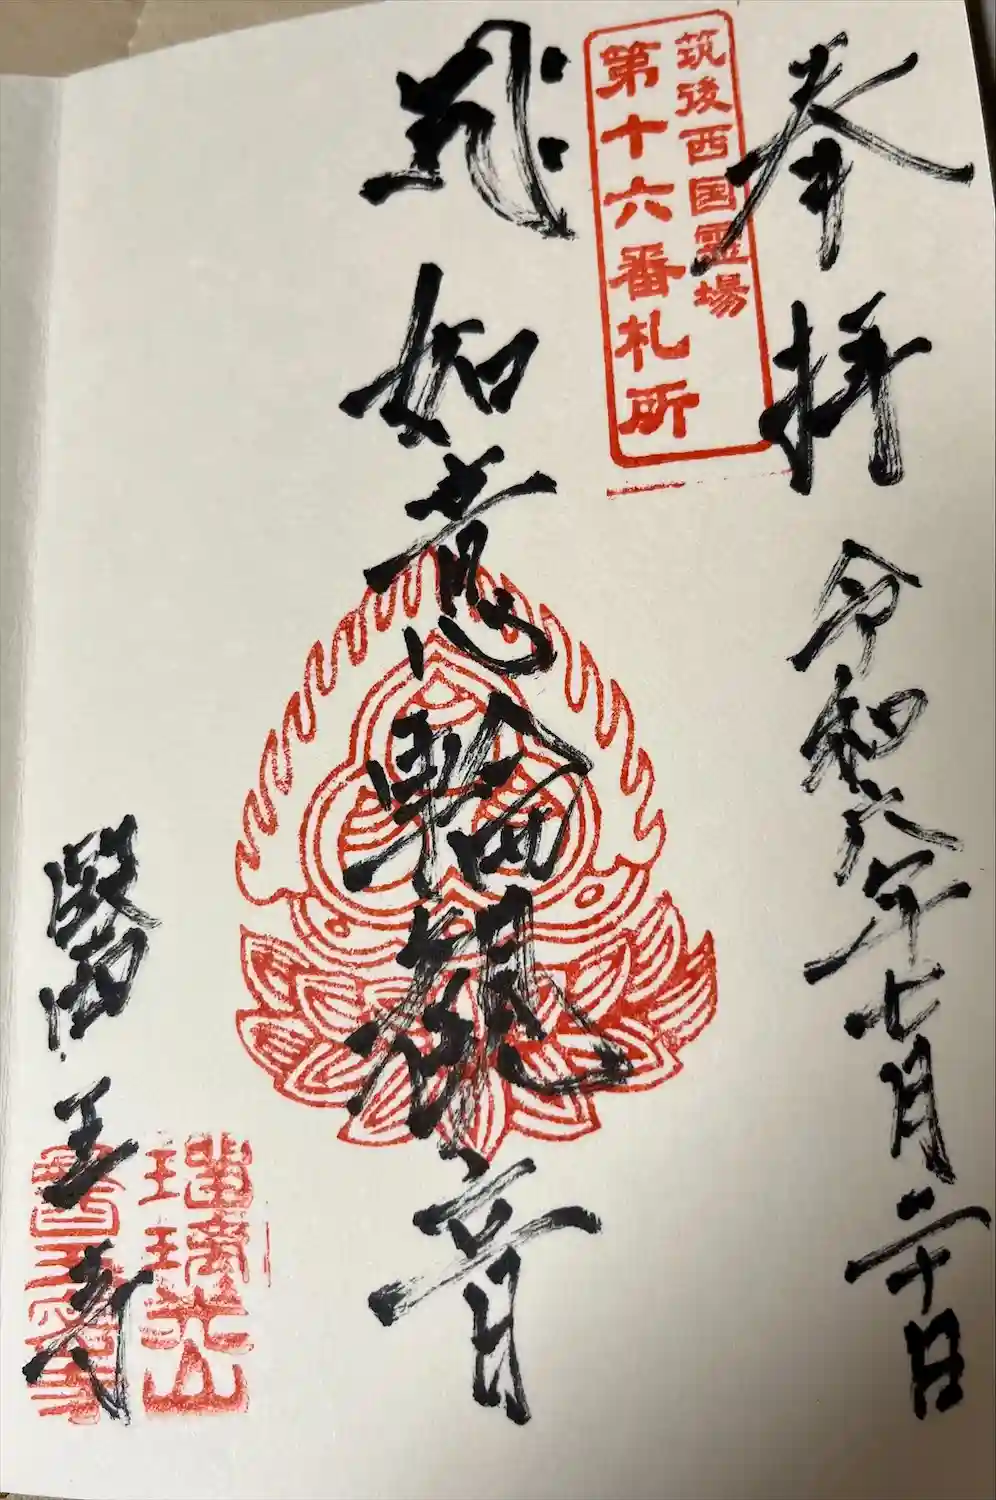 奉拝 令和六年七月二十日
筑後西国霊場
第十六番札所
如意輪観音
醫王寺
瑠璃光山